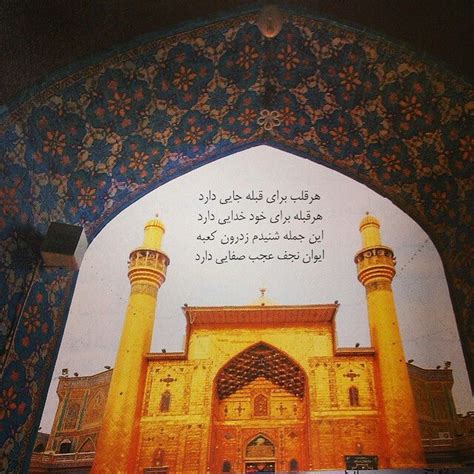 هرقلب برای قبله جایی دارد
هرقبله برای خود خدایی دارد
این جمله شنیدم زدرون کعبه
ایوان نجف عجب صفایی دارد